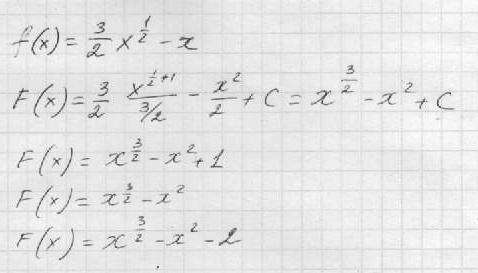 f(x) = 3/2 x^(1/2) - x
F(x) = 3/2 x^(1/2+1)/(3/2) - x²/2 + C = x^(3/2) - x² + C
F(x) = x^(3/2) - x² + 1
F(x) = x^(3/2) - x²
F(x) = x^(3/2) - x² - 2